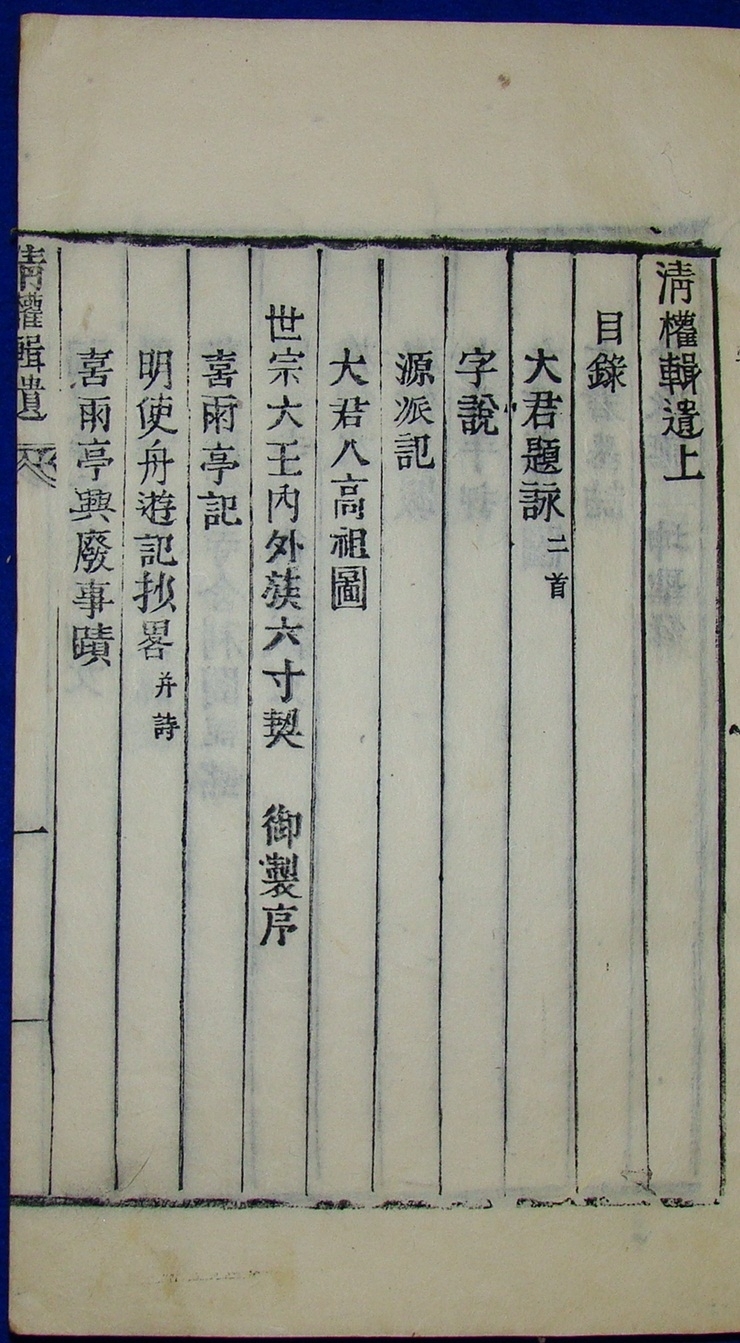 淸權輯遺上
目錄
大君題詠 二首
字說
源派記
大君八高祖圖
世宗大王內外族六寸契 御製序
喜雨亭記
明使舟遊記抄畧 幷詩
喜雨亭興廢事蹟
淸權輯遺
一